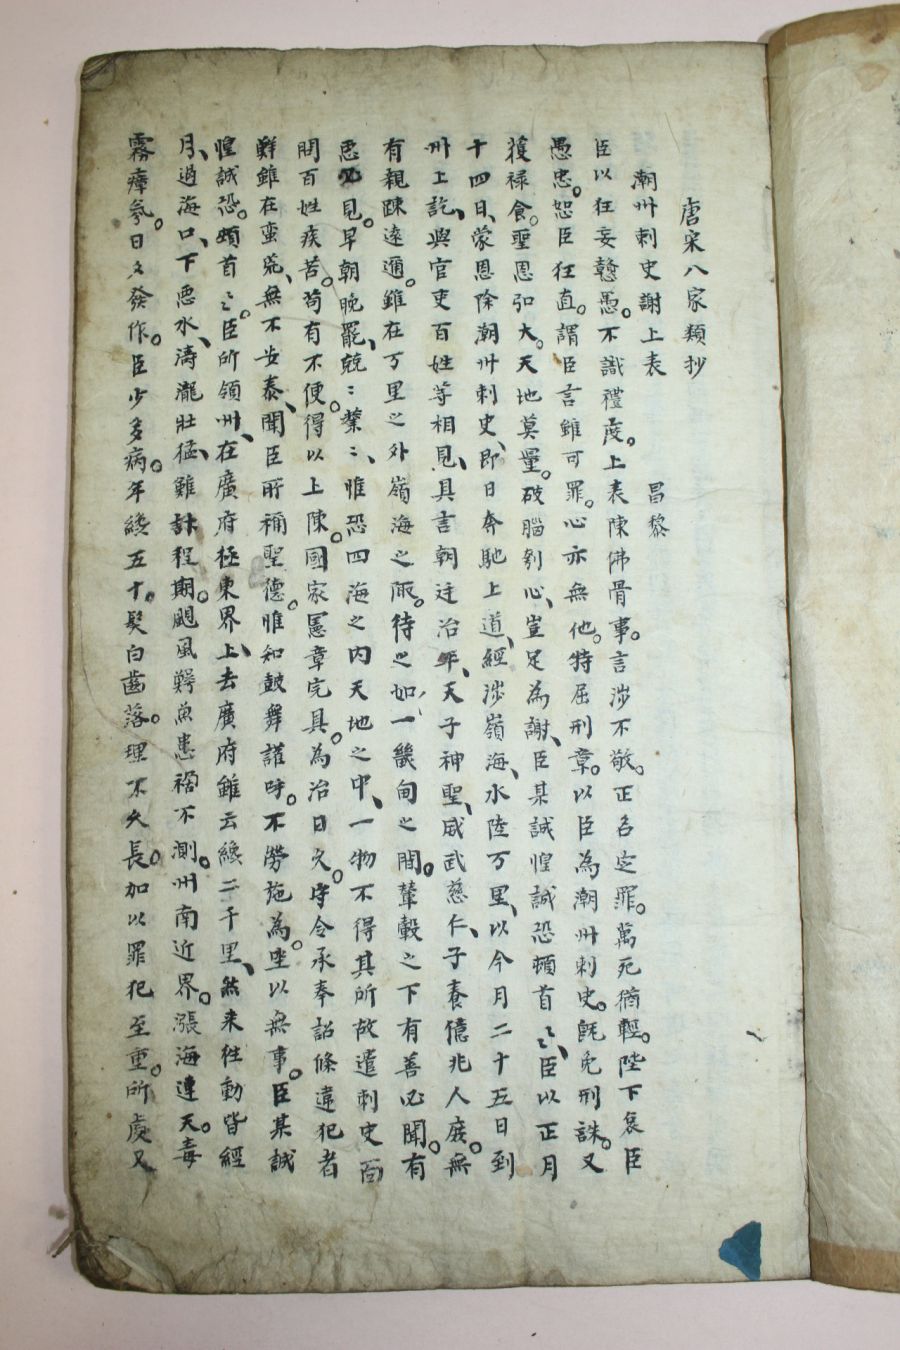 唐宋八家類抄
潮州刺史謝上表 昌黎
臣以狂妄戇愚。不識禮度。上表陳佛骨事。言涉不敬。正名定罪。萬死猶輕。陛下哀臣
愚忠。恕臣狂直。謂臣言雖可罪。心亦無他。特屈刑章。以臣為潮州刺史。旣免刑誅。又
獲祿食。聖恩弘大。天地莫量。破腦刳心、豈足為謝、臣某誠惶誠恐頓首〻、臣以正月
十四日、蒙恩除潮州刺史、即日奔馳上道、經涉嶺海、水陸万里、以今月二十五日到
州上訖、與官吏百姓等相見、具言朝廷治平、天子神聖、威武慈仁、子養億兆人庶。無
有親踈遠邇。雖在万里之外嶺海之陬。待之如一畿甸之間。輦轂之下有善必聞。有
惡必見。早朝晚罷、兢〻業〻、惟恐四海之內天地之中、一物不得其所故遣刺史面
問百姓疾苦。苟有不便。得以上陳。國家憲章完具。為治日久。守令承奉詔條違犯者
鮮雖在蛮荒、無不安泰、聞臣所稱聖德。惟知鼓舞讙呼。不勞施為。坐以無事。臣某誠
惶誠恐。頓首〻。臣所領州、在廣府極東界、上去廣府雖云纔二千里、然来往動皆經
月、過海口、下惡水、濤瀧壯猛、難計程期。颶風鱷魚患禍不測。州南近界。漲海連天。毒
霧瘴氛。日夕發作。臣少多病。年纔五十。髮白齒落。理不久長。加以罪犯至重。所處又